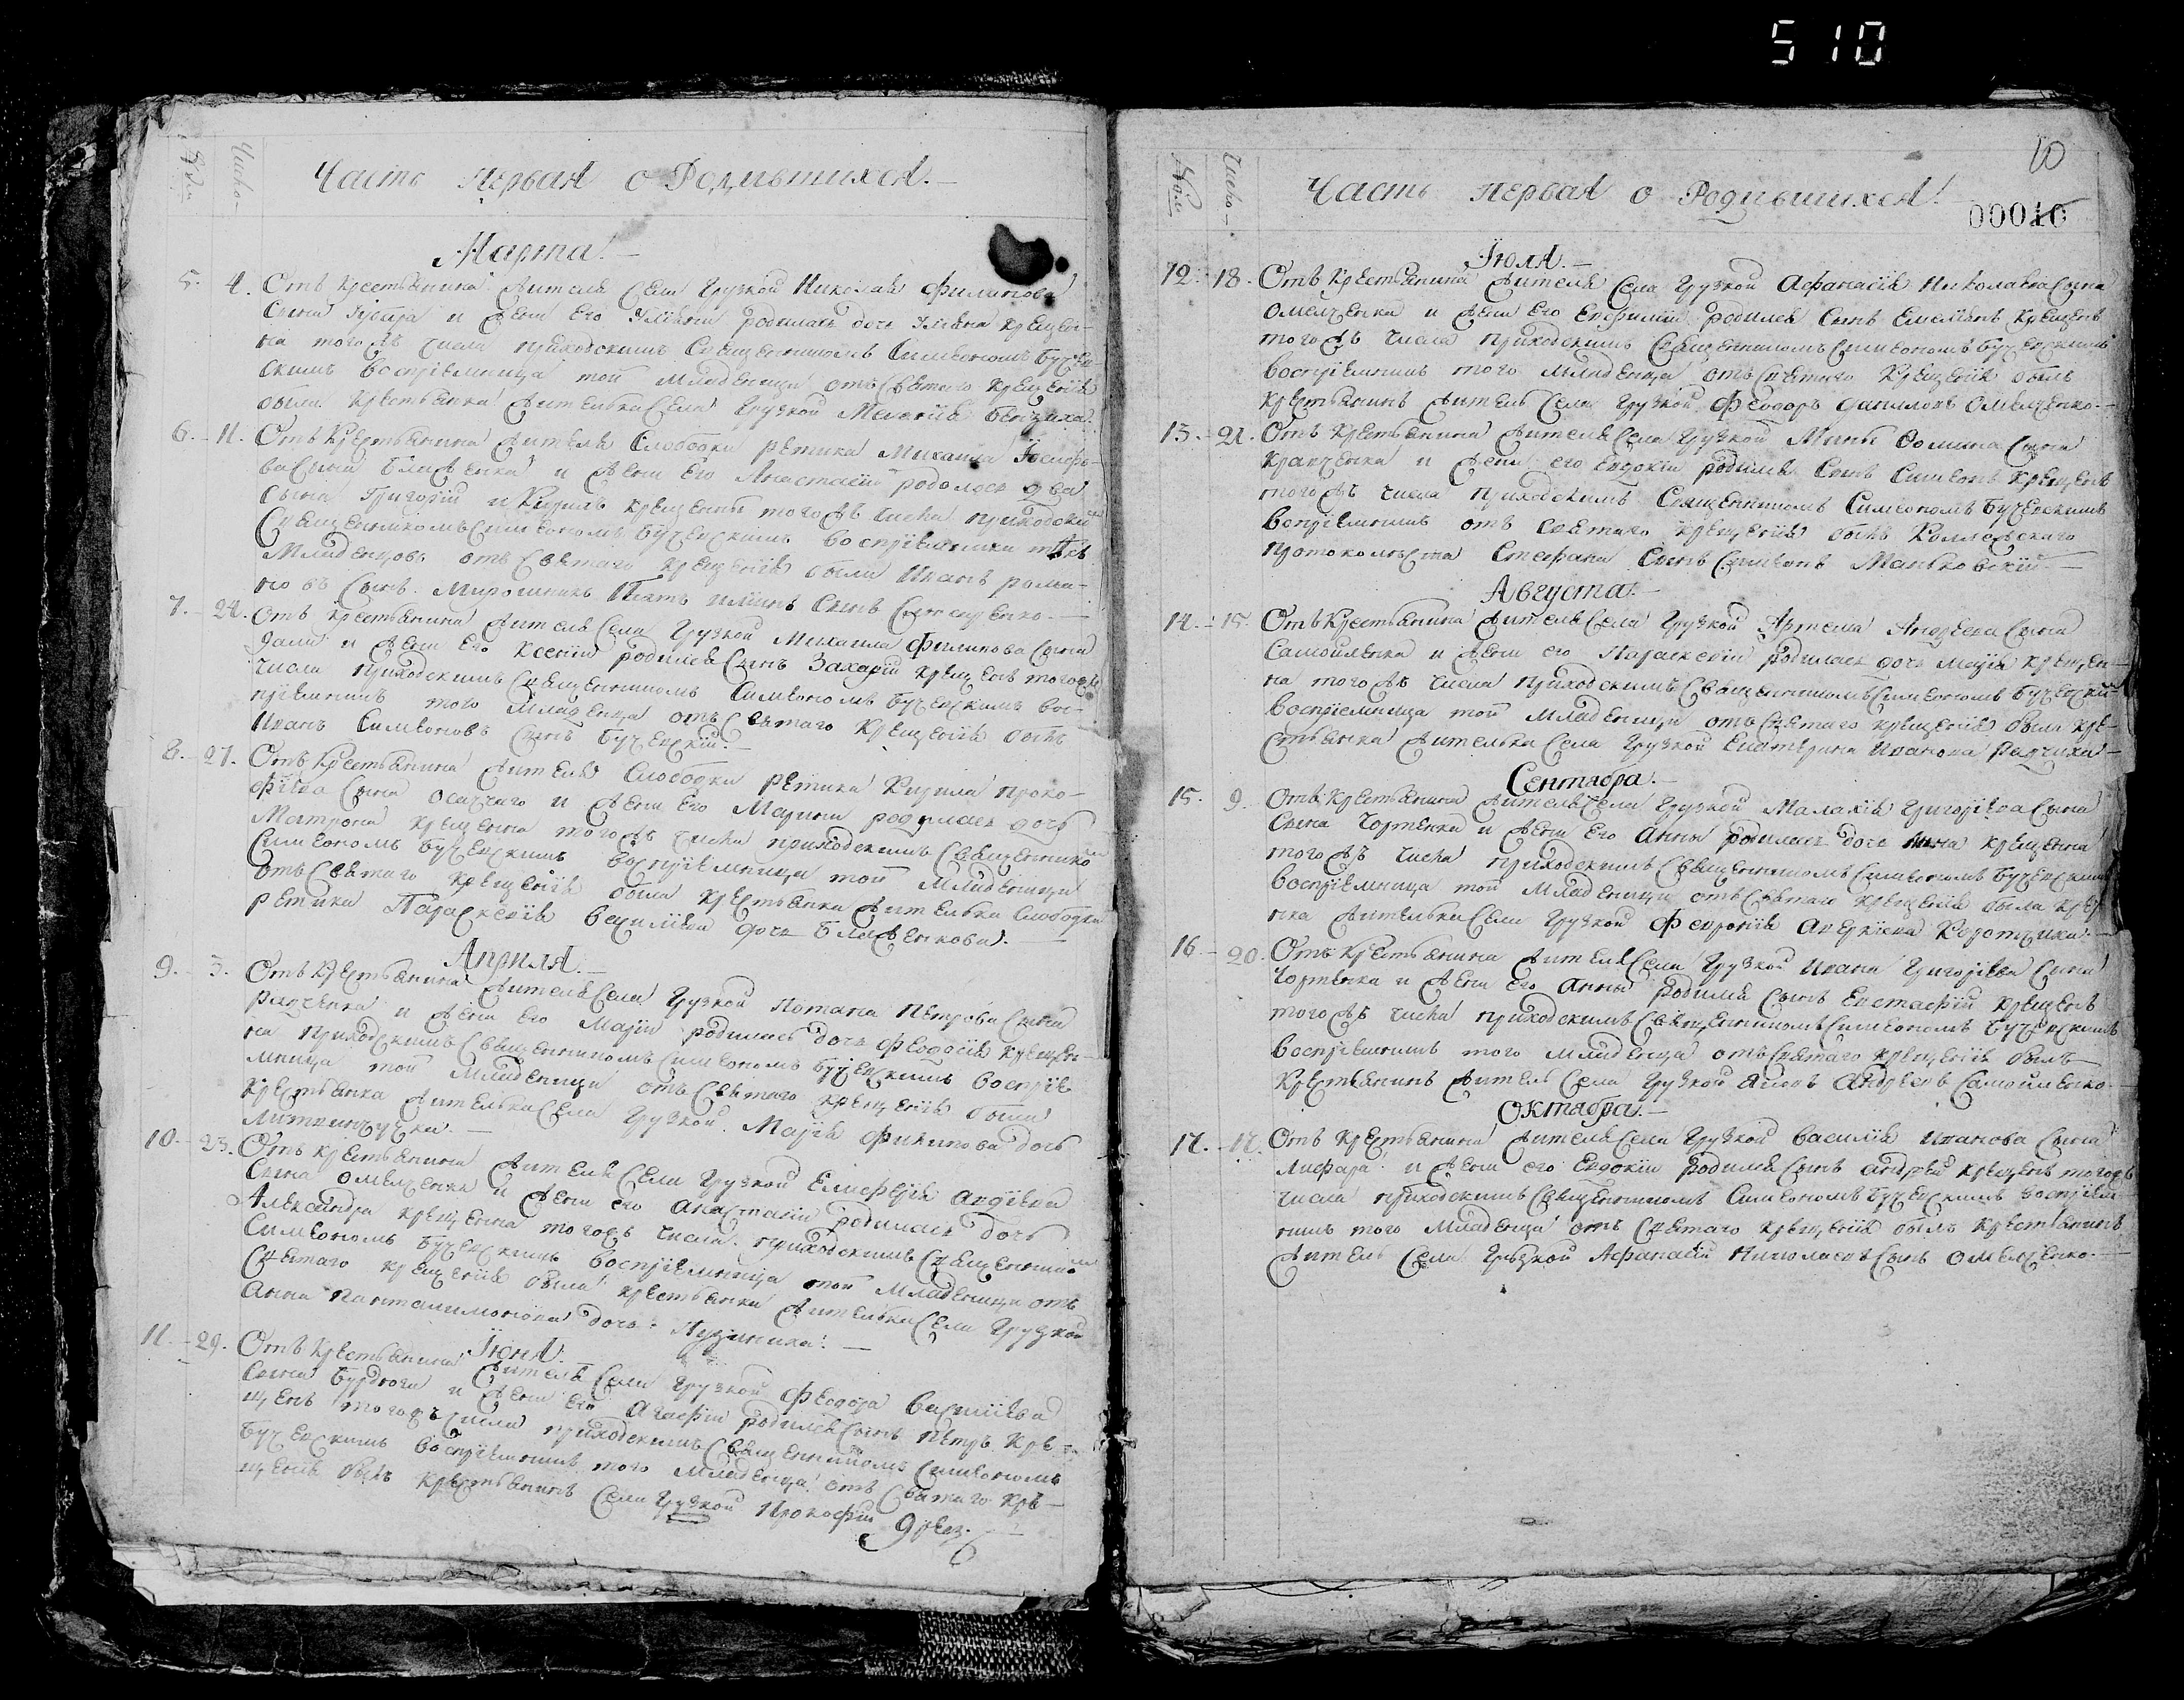 510
Число
Часть первая о Родившихся.
Марта.
5. 4. Отъ крестьянина жителя села Грузкой Николая Филипова
сына и жены его Улияни родилась дочь Улияна крещен-
на того жъ числа приходскимъ священникомъ Симеономъ Бучен-
скимъ восприемница той младеници отъ святаго крещения
была крестьянка жителька села Грузкой Мелания
6. 11. Отъ крестьянина жителя слободки Ретика Михаила Иосифо-
ва сына Ближенка и жены его Анастасии родолось два
сына Григорий и Кирилъ крещены того жъ числа приходским
священникомъ Симеономъ Бученскимъ восприемники техъ
младенцовъ отъ святаго крещения были Иванъ Рома-
новъ сынъ Мирошникъ сынъ
7. 24. Отъ крестьянина жителя села Грузкой Михаила Филипова сына
и жены его Ксении родился сынъ Захарий крещенъ того жъ
числа приходскимъ священникомъ Симеономъ Бученскимъ вос-
приемникъ того младенца отъ святаго крещения былъ
Иванъ Симеоновъ сынъ Бученский.
8. 27. Отъ крестьянина жителя слободки Ретика Кирила Проко-
фиева сына Осадчаго и жены его Марини родилась дочь
Матрона крещенна того жъ числа приходскимъ священником
Симеономъ Бученскимъ восприемница той младеници
отъ святаго крещения была крестьянка жителька слободки
Ретика Параскевия Василиева дочь Ближенкова.
Апреля.
9. 3. Отъ крестьянина жителя села Грузкой Потапа Петрова сына
Радченка и жены его Марии родилась дочь Феодосия крещен-
на приходскимъ священникомъ Симеономъ Бученскимъ восприе-
мница той младеници отъ святаго крещения была
крестьянка жителька села Грузкой Мария Филипова дочь
10. 23. Отъ крестьянина жителя села Грузкой Елисферия Авдиева
сына Омелченка и жены его Анастасии родилась дочь
Александра крещенна того жъ числа приходскимъ священником
Симеономъ Бученскимъ восприемница той младеници отъ
святаго крещения была крестьянка жителька села Грузкой
Анна Пантелимонова дочь
Июня.
11. 29. Отъ крестьянина жителя села Грузкой Феодора Василиева
сына Бурдюга и жены его Агафии родился сынъ Петръ кре-
щенъ того жъ числа приходскимъ священникомъ Симеономъ
Бученскимъ восприемникъ того младенца отъ святаго кре-
щения былъ крестьянинъ села Грузкой Прокофий
10
Число
Часть первая о Родившихся.
00010
Июля.
12. 18. Отъ крестьянина жителя села Грузкой Афанасия Николаева сына
Омелченка и жены его Евфимии родился сынъ Емелиянъ крещенъ
того жъ числа приходскимъ священникомъ Симеономъ Бученскимъ
восприемникъ того младенца отъ святаго крещения былъ
крестьянинъ житель села Грузкой Феодоръ Даниловъ Омелченко.
13. 21. Отъ крестьянина жителя села Грузкой Мины Фомина сына
Кравченка и жены его Евдокии родился сынъ Симеонъ крещенъ
того жъ числа приходскимъ священникомъ Симеономъ Бученскимъ
восприемникъ отъ святаго крещения былъ
протоколиста Стефана сынъ Симеонъ Маньковский.
Августа.
14. 15. Отъ крестьянина жителя села Грузкой Артема Андреева сына
Самойленка и жены его Параскевии родилась дочь Мария крещен-
на того жъ числа приходскимъ священникомъ Симеономъ Бученски
восприемница той младеници отъ святаго крещения была кре-
стьянка жителька села Грузкой Екатерина Иванова Радчиха
Сентября.
15. 9. Отъ крестьянина жителя села Грузкой Малахия Григориева сына
сына Чортенка и жены его Анны родилась дочь крещенна
того жъ числа приходскимъ священникомъ Симеономъ Бученским
восприемница той младеници отъ святаго крещения была крес
нка жителька села Грузкой Феврония Аверкиева
16. 20. Отъ крестьянина жителя села Грузкой Ивана Григориева сына
Чортенка и жены его Анны родился сынъ Евстафий крещенъ
того жъ числа приходскимъ священникомъ Симеономъ Бученскимъ
восприемникъ того младенца отъ святаго крещения былъ
крестьянинъ житель села Грузкой Яковъ Андреевъ Самойленко
Октября.
17. 17. Отъ крестьянина жителя села Грузкой Василия Иванова сына
и жены его Евдокии родился сынъ Андрей крещенъ того жъ
числа приходскимъ священникомъ Симеономъ Бученскимъ восприем-
никъ того младенца отъ святаго крещения былъ крестьянинъ
житель села Грузкой Афанасий Николаевъ сынъ Омелченко.